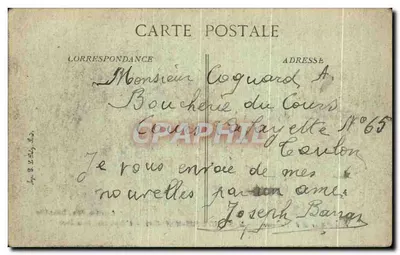 CARTE POSTALE
CORRESPONDANCE
ADRESSE
Monsieur Coquard A.
Boucherie du Cours
Cours Lafayette N°65
Toulon
Je vous envoie de mes
nouvelles par son ami
Joseph
CPAPHIL